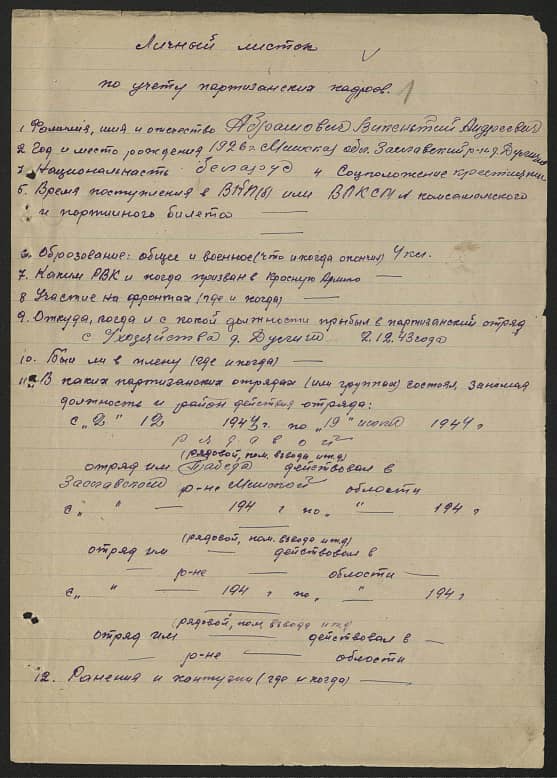 Личный листок
по учету партизанских кадров. 1
1. Фамилия, имя и отчество Абрамович Викентий Андреевич
2. Год и место рождения 1926 г. Минская обл. Заславский р-н д.
Национальность беларус 4 Соцположение крестьянин
5. Время поступления в ВКП(б) или ВЛКСМ № комсомольского
и партийного билета —
6. Образование: общее и военное (что и когда окончил) 4 кл.
7. Каким РВК и когда призван в Красную Армию —
8 Участие на фронтах (где и когда) —
9. Откуда, когда и с какой должности прибыл в партизанский отряд
с д. 2.12.43 года
10. Был ли в плену (где и когда) —
11. В каких партизанских отрядах (или группах) состоял, занимая
должность и район действия отряда:
с „2" 12 1943 г. по „19" июня 1944 г
рядавой
(рядовой, пом. взвода и т.д)
отряд им действовал в
Заславском р-не Минской области
с „ " — 194 г по „ " — 194 г
(рядовой, пом. взвода и т.д)
отряд им — действовал в
— р-не — области —
с „ " — 194 г по „ " — 194 г
(рядовой, пом. взвода и т.д
отряд им — действовал в —
— р-не — области
12. Ранения и контузии (где и когда) —